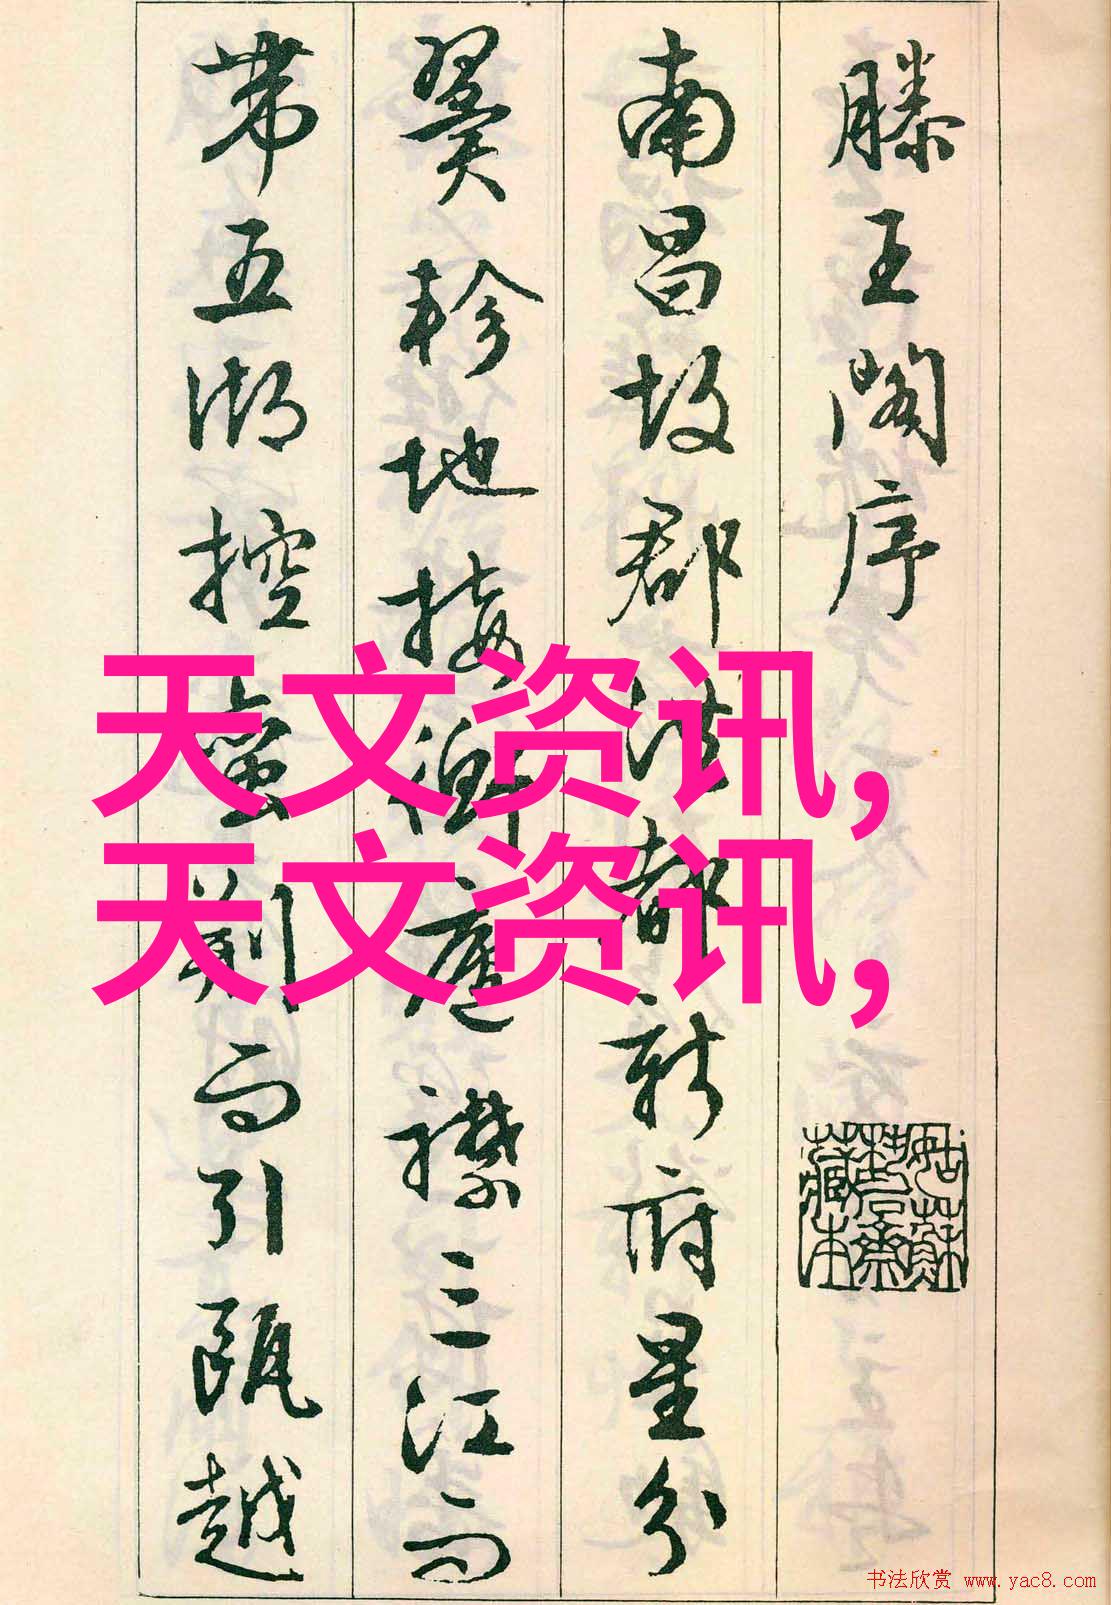 滕王閣序
南昌故郡洪都新府星分
翼軫地接衡廬襟三江而
帶五湖控蛮荊而引甌越
天文资讯,
天文资讯,
书法欣赏 www.yac8.com